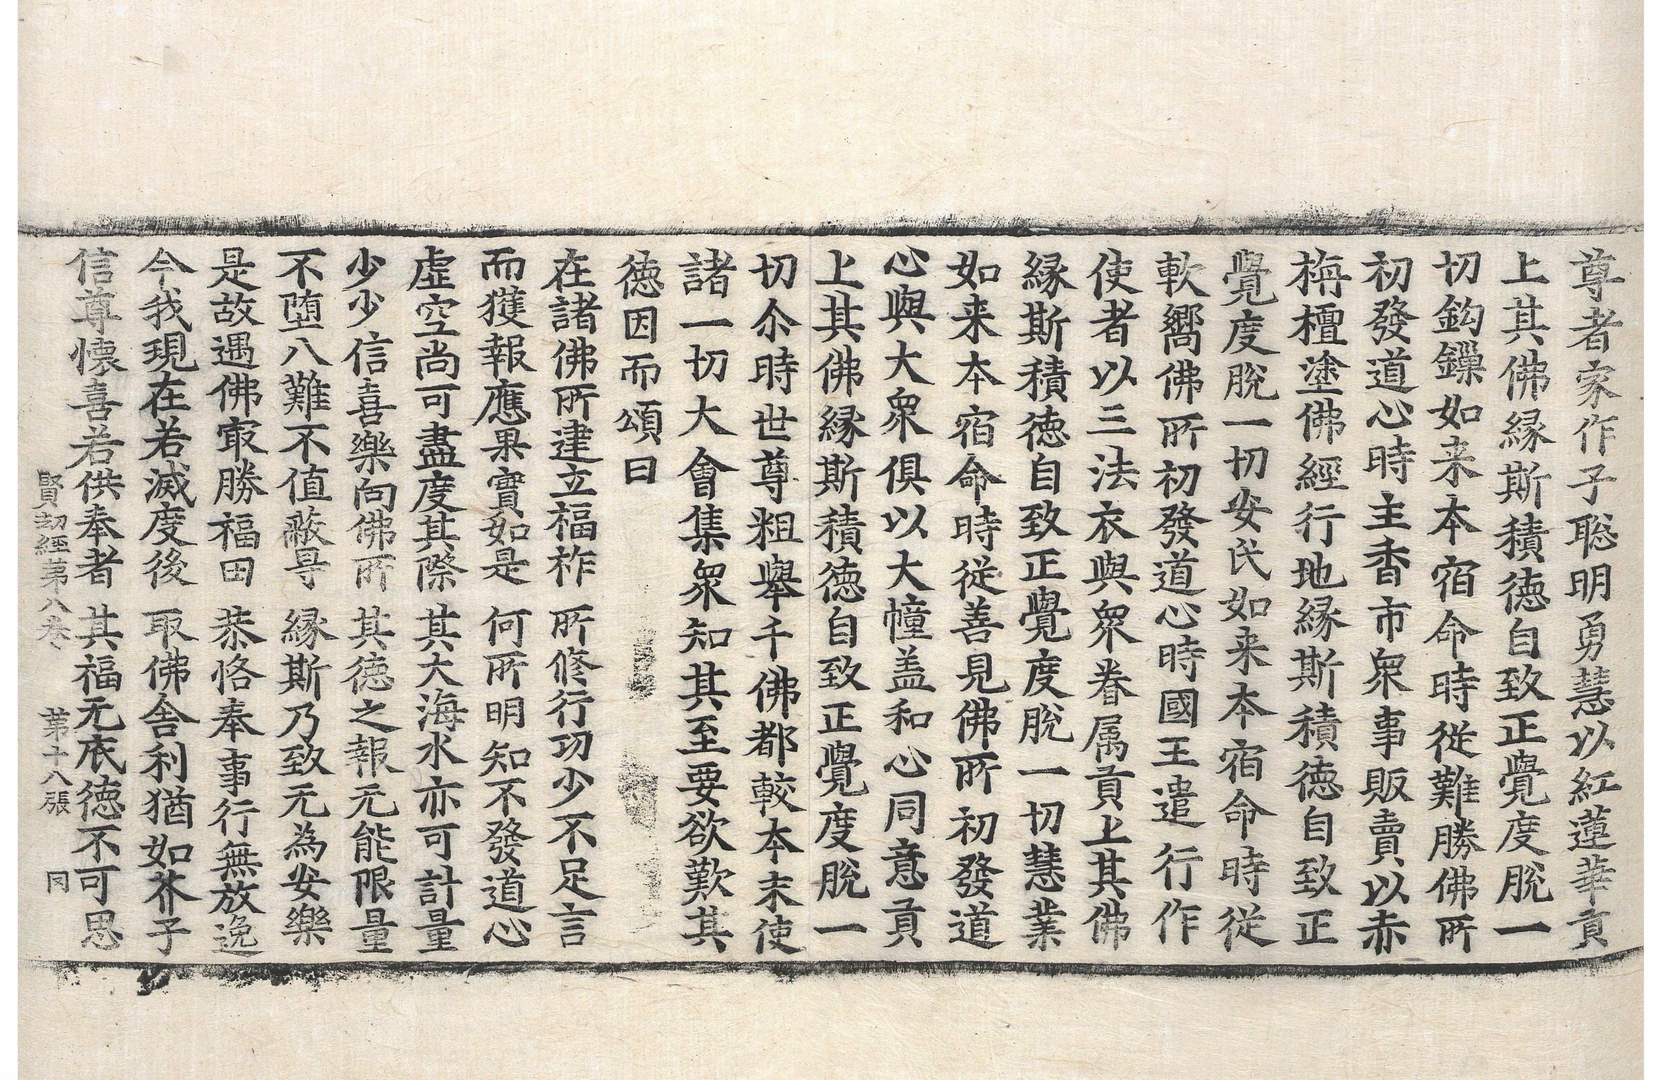 尊者家作子聡明勇慧以紅蓮華貢
上其佛縁斯積徳自致正覺度脫一
切鈎鏁如来本宿命時従難勝佛所
初發道心時主香市衆事販賣以赤
栴檀塗佛經行地縁斯積徳自致正
覺度脫一切安民如来本宿命時従
軟嚮佛所初發道心時國王遣行作
使者以三法衣與衆眷属貢上其佛
縁斯積徳自致正覺度脫一切慧業
如来本宿命時従善見佛所初發道
心與大衆俱以大幢盖和心同意貢
上其佛縁斯積徳自致正覺度脫一
切尒時世尊粗舉千佛都較本末使
諸一切大會集衆知其至要欲歎其
徳因而頌曰
在諸佛所建立福祚　所修行功少不足言
而獲報應果實如是　何所明知不發道心
虛空尚可盡度其際　其大海水亦可計量
少少信喜樂向佛所　其徳之報无能限量
不堕八難不值蔽㝵　縁斯乃致无為安樂
是故遇佛㝡勝福田　恭恪奉事行無放逸
今我現在若滅度後　取佛舎利猶如芥子
信尊懐喜若供奉者　其福无底徳不可思
賢劫經第八卷　第十八張　冈